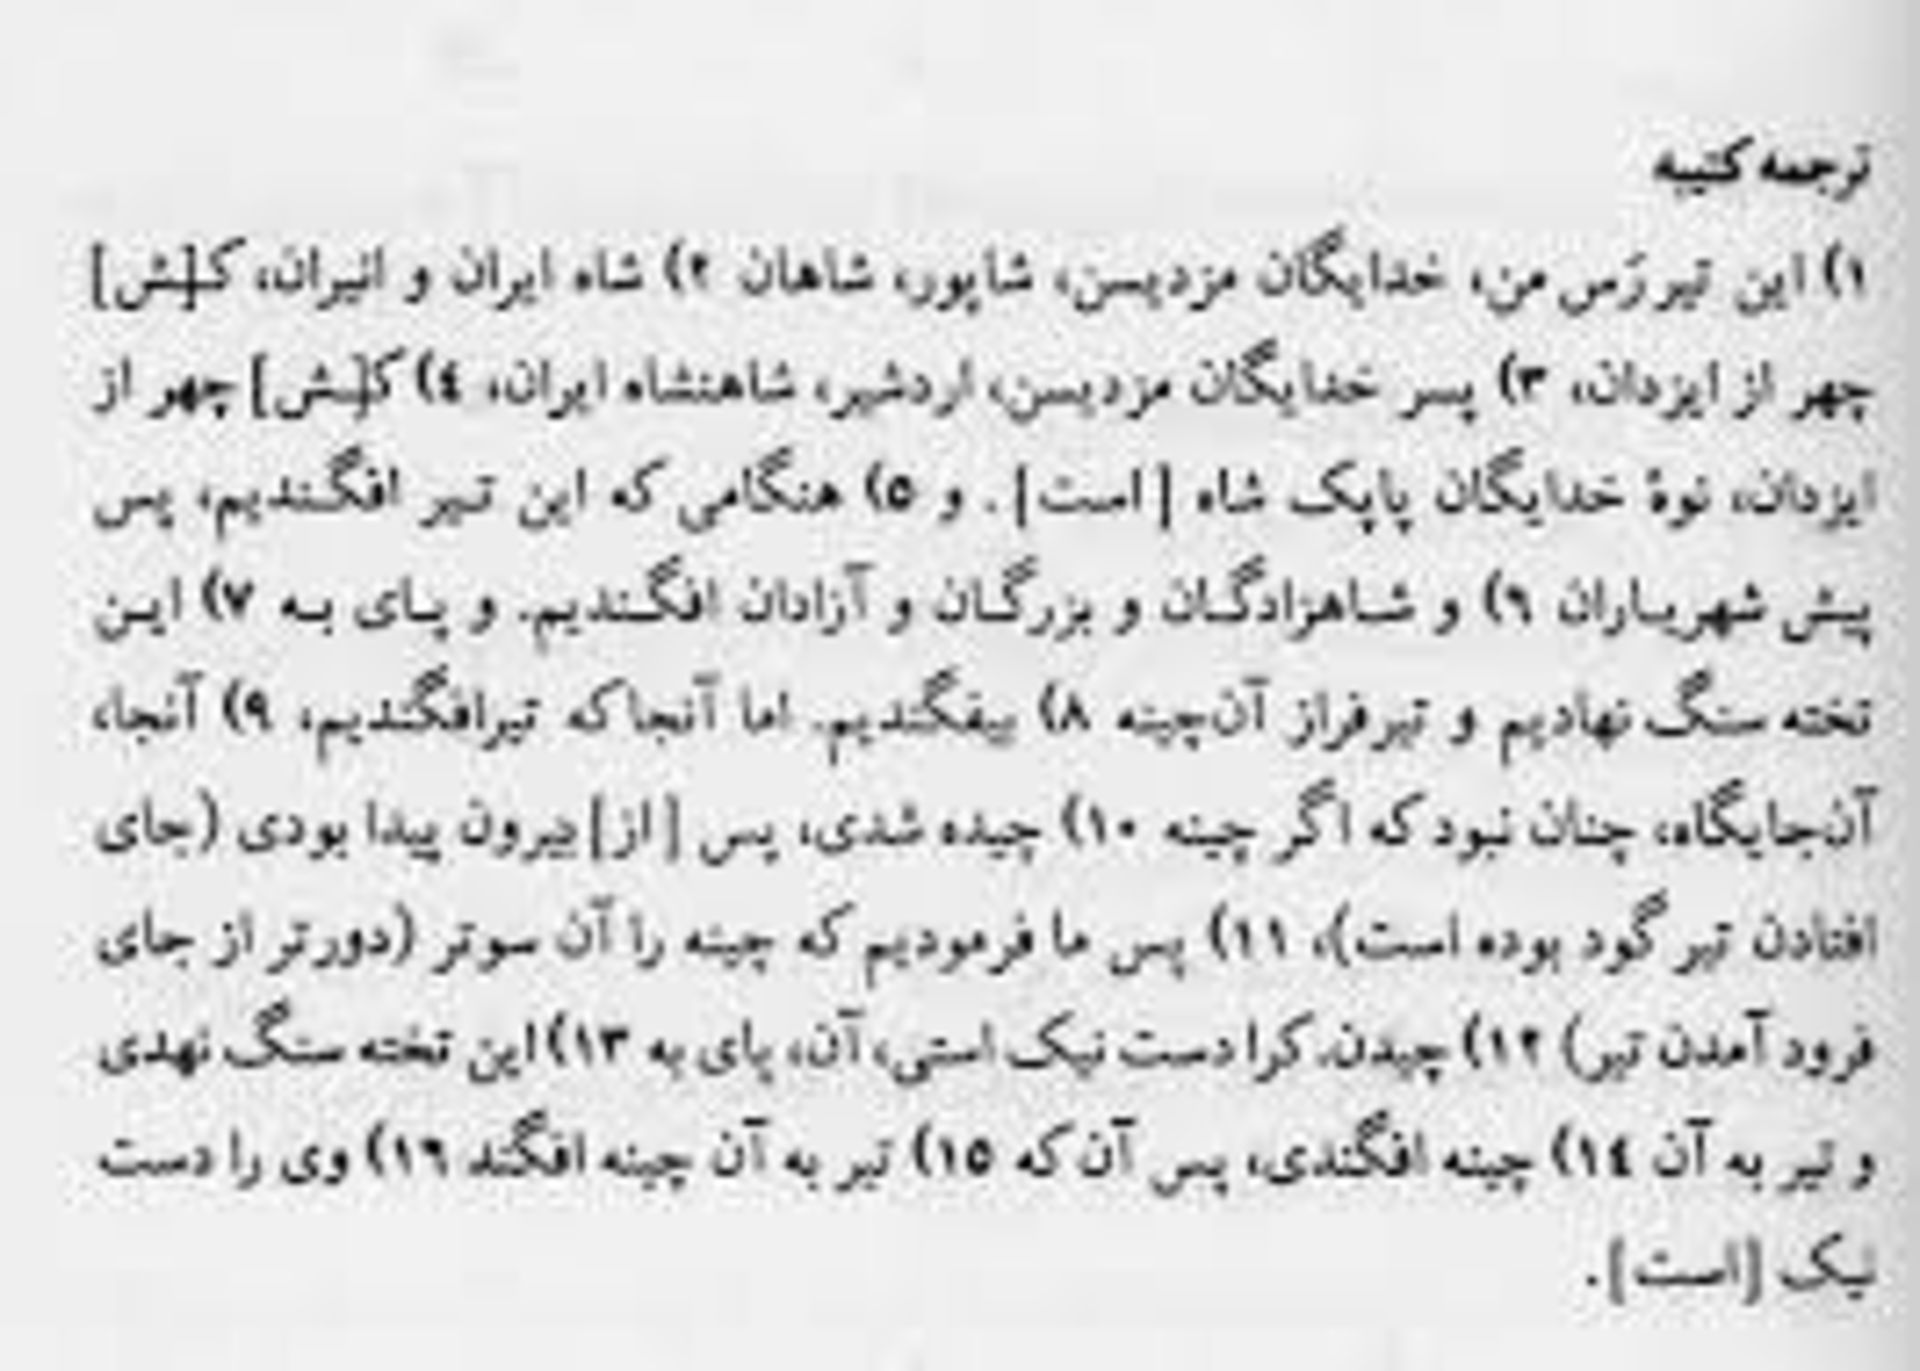 ترجمه کتیبه
۱) این تیررَس من، خدایگان مزدیسن، شاپور، شاهان ۲) شاه ایران و انیران، کـ[ـش]
چهر از ایزدان، ۳) پسر خدایگان مزدیسن، اردشیر، شاهنشاه ایران، ٤) کـ[ـش] چهر از
ایزدان، نوهٔ خدایگان پاپک شاه [است]. و ۵) هنگامی که این تیر افگندیم، پس
پیش شهریاران ٦) و شاهزادگان و بزرگان و آزادان افگندیم. و پای به ۷) این
تخته سنگ نهادیم و تیرفراز آن‌چینه ۸) بیفگندیم. اما آنجا که تیرافگندیم، ۹) آنجا،
آن‌جایگاه، چنان نبود که اگر چینه ۱۰) چیده شدی، پس [از] بیرون پیدا بودی (جای
افتادن تیر گود بوده است)، ۱۱) پس ما فرمودیم که چینه را آن سوتر (دورتر از جای
فرود آمدن تیر) ۱۲) چیدن. کرا دست نیک استی، آن، پای به ۱۳) این تخته سنگ نهدی
و تیر به آن ۱٤) چینه افگندی، پس آن که ۱۵) تیر به آن چینه افگند ۱٦) وی را دست
نیک [است].